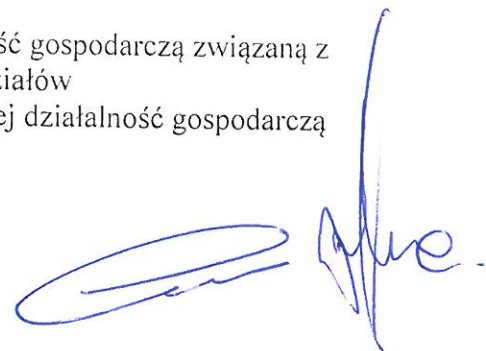 ść gospodarczą związaną z
ziałów
ej działalność gospodarczą